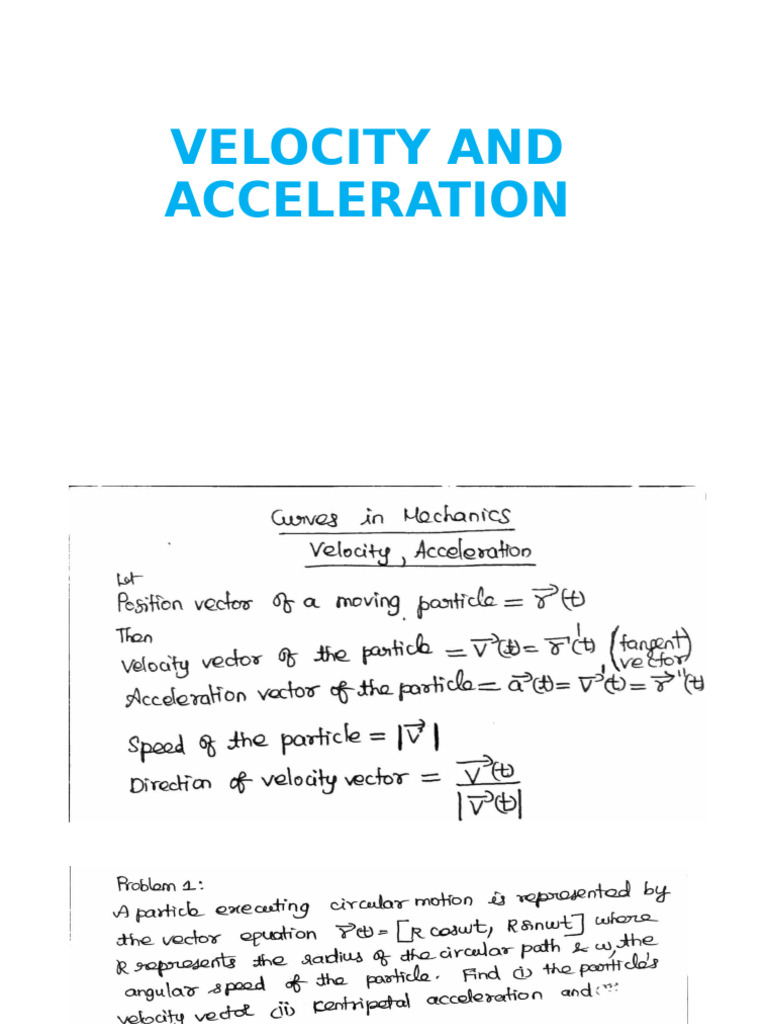 VELOCITY AND
ACCELERATION
Curves in Mechanics
Velocity, Acceleration
Let
Position vector of a moving particle = r⃗(t)
Then
Velocity vector of the particle = v⃗(t) = r⃗'(t) (tangent vector)
Acceleration vector of the particle = a⃗(t) = v⃗'(t) = r⃗''(t)
Speed of the particle = |v⃗|
Direction of velocity vector = v⃗(t) / |v⃗(t)|
Problem 1:
A particle executing circular motion is represented by
the vector equation r⃗(t) = [R coswt, R sinwt] where
R represents the radius of the circular path & w, the
angular speed of the particle. Find (i) the particle's
velocity vector (ii) Centripetal acceleration and